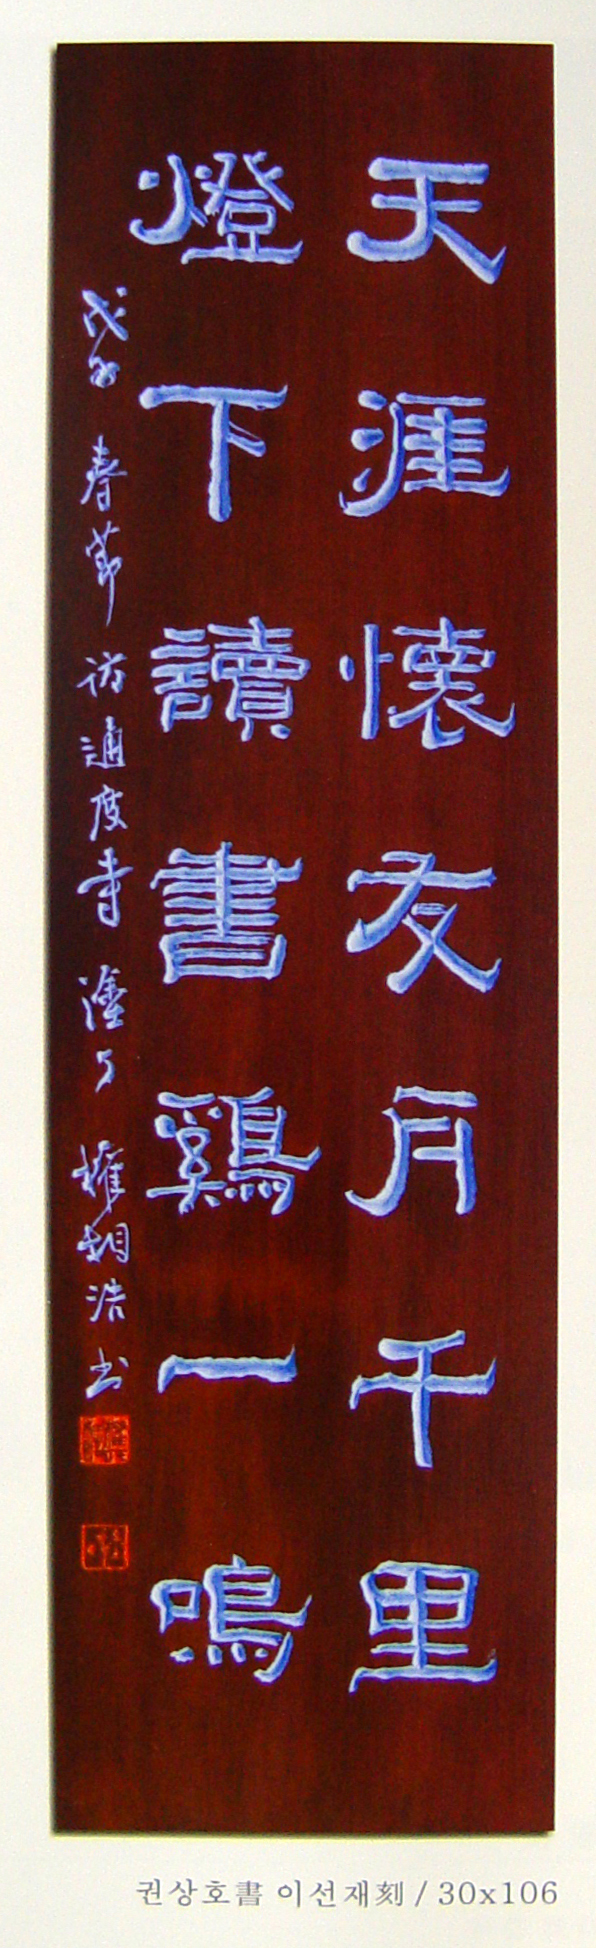 天涯懷友月千里
燈下讀書鷄一鳴
戊子 春節 訪通度寺 塗丁 權相浩 书
권상호書 이선재刻 / 30x106